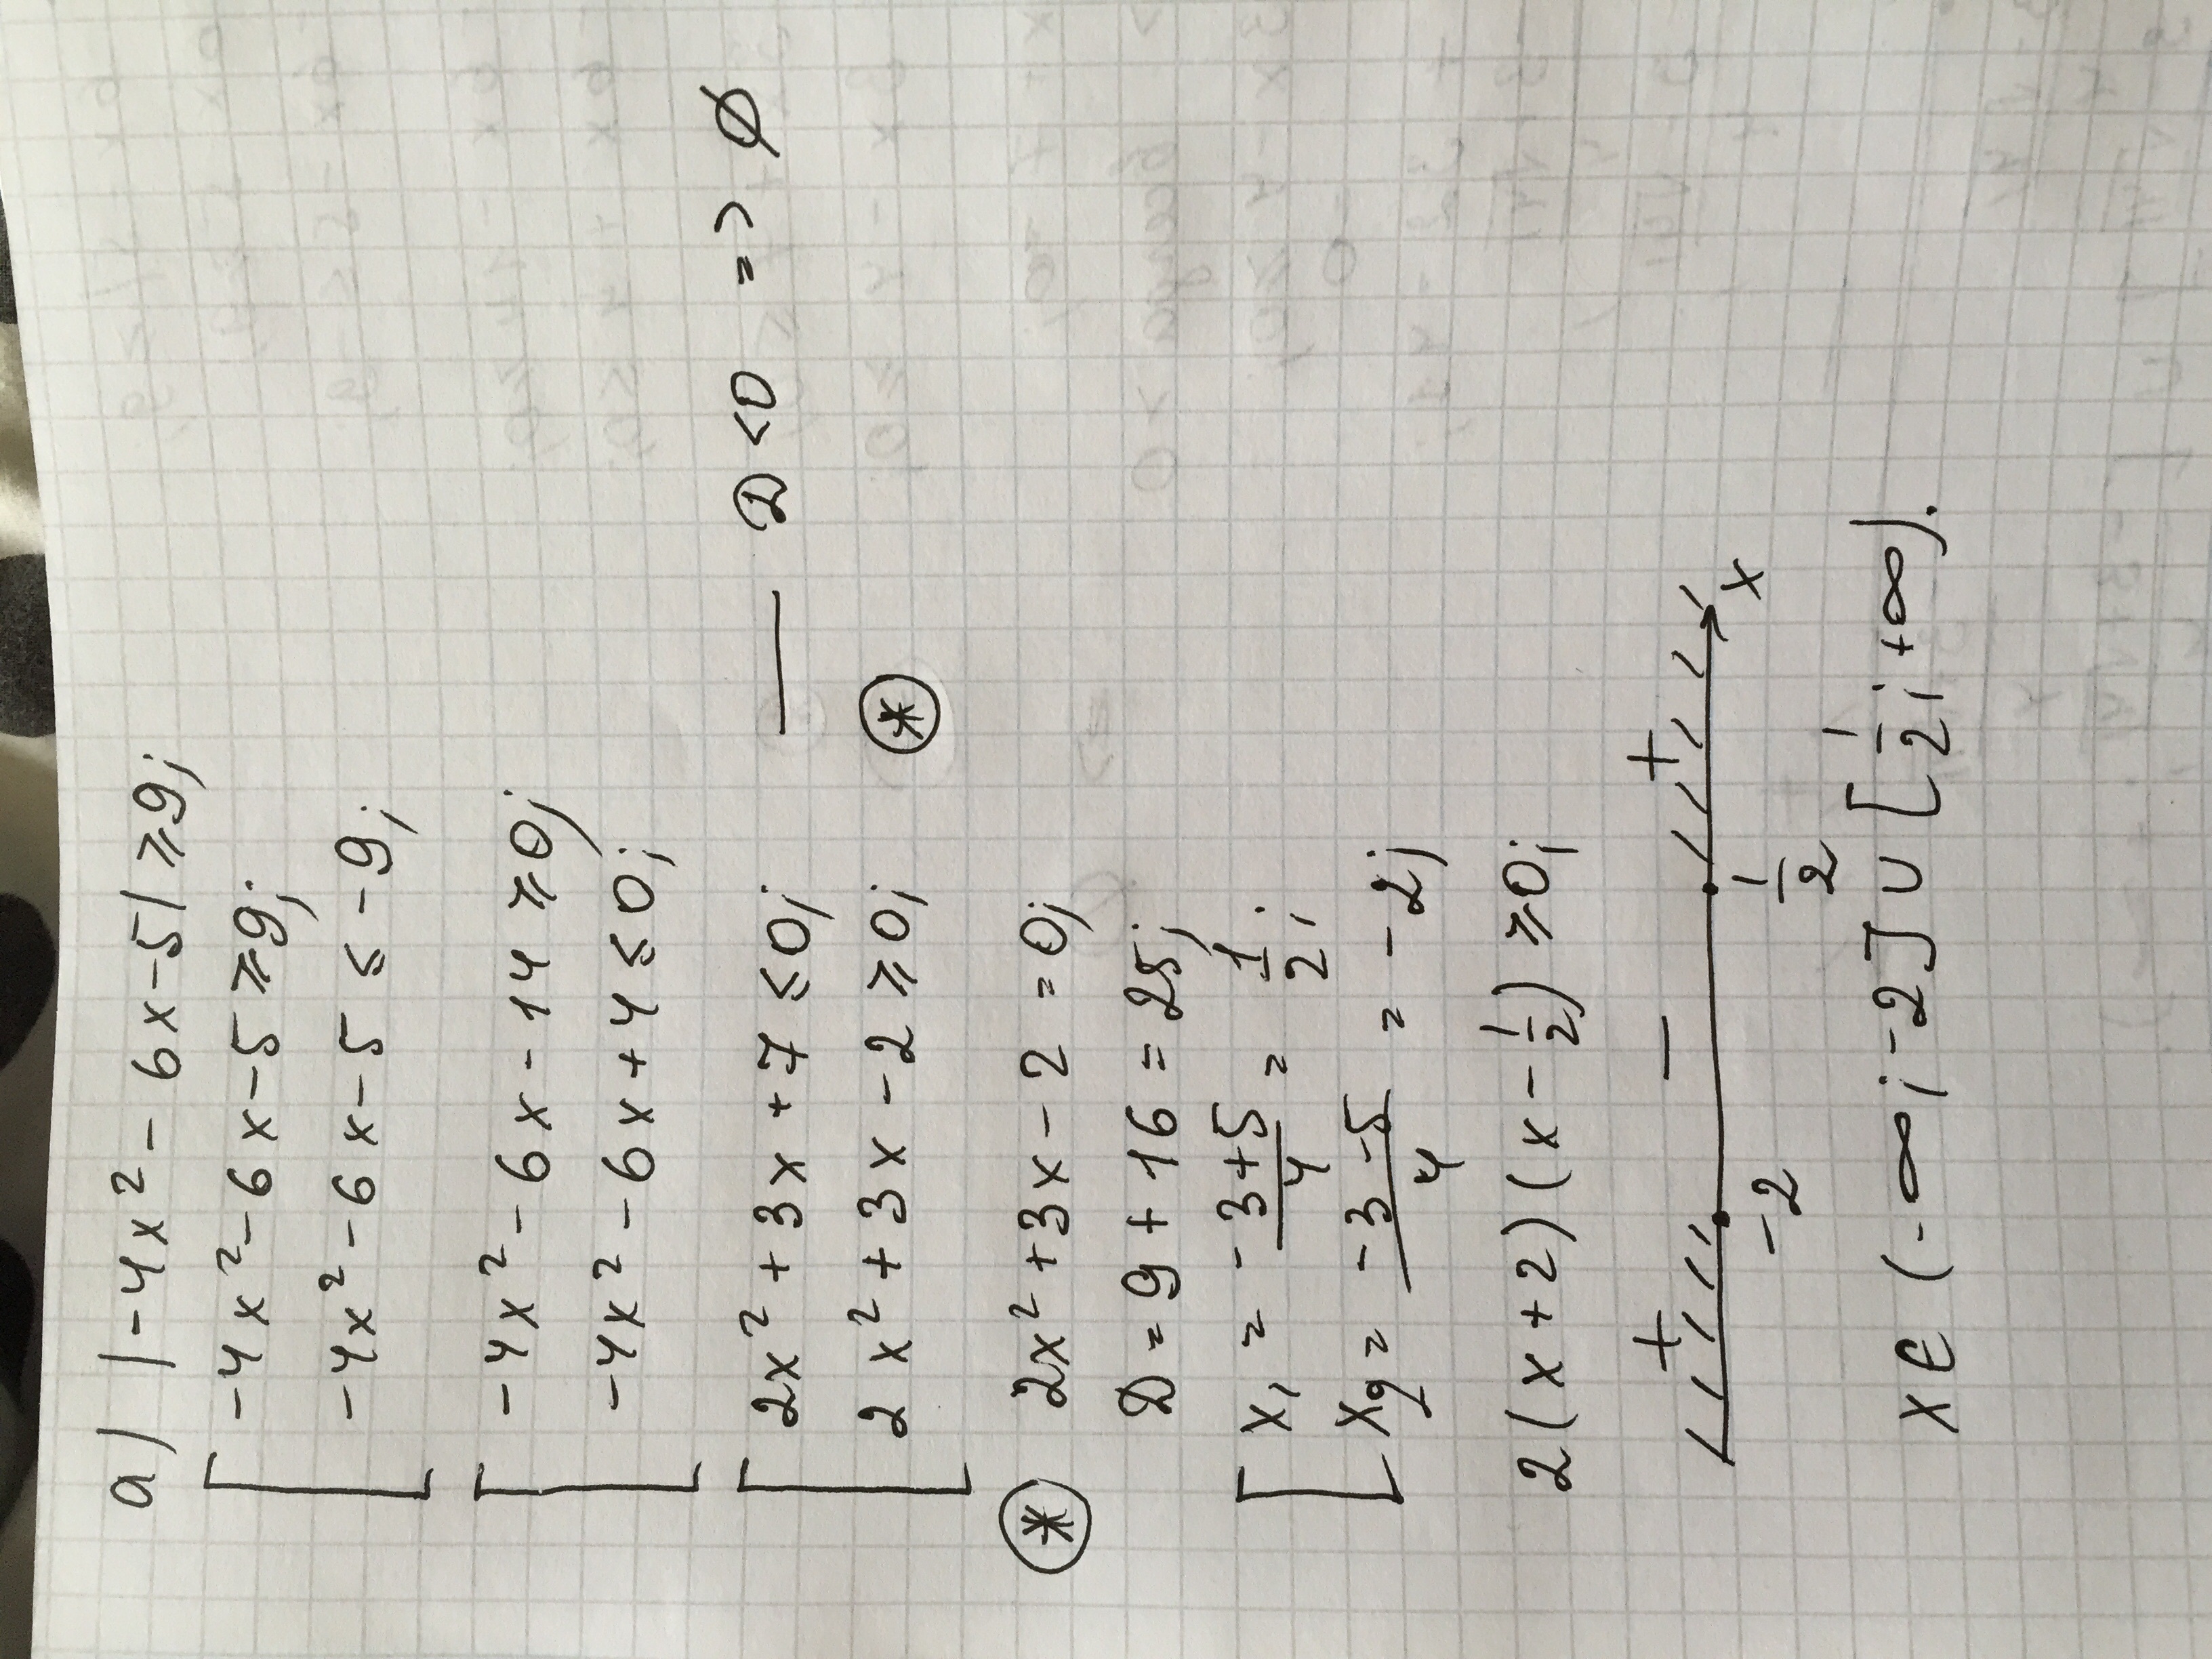 а) |-4x² - 6x - 5| ≥ 9;
[ -4x² - 6x - 5 ≥ 9;
-4x² - 6x - 5 ≤ -9;
[ -4x² - 6x - 14 ≥ 0;
-4x² - 6x + 4 ≤ 0;
[ 2x² + 3x + 7 ≤ 0; — D < 0 => ∅
2x² + 3x - 2 ≥ 0; (*)
(*) 2x² + 3x - 2 = 0;
D = 9 + 16 = 25;
[ x₁ = (-3+5)/4 = 1/2;
x₂ = (-3-5)/4 = -2;
2(x+2)(x - 1/2) ≥ 0;
+ - +
-2 1/2 x
x ∈ (-∞; -2] ∪ [1/2; +∞).